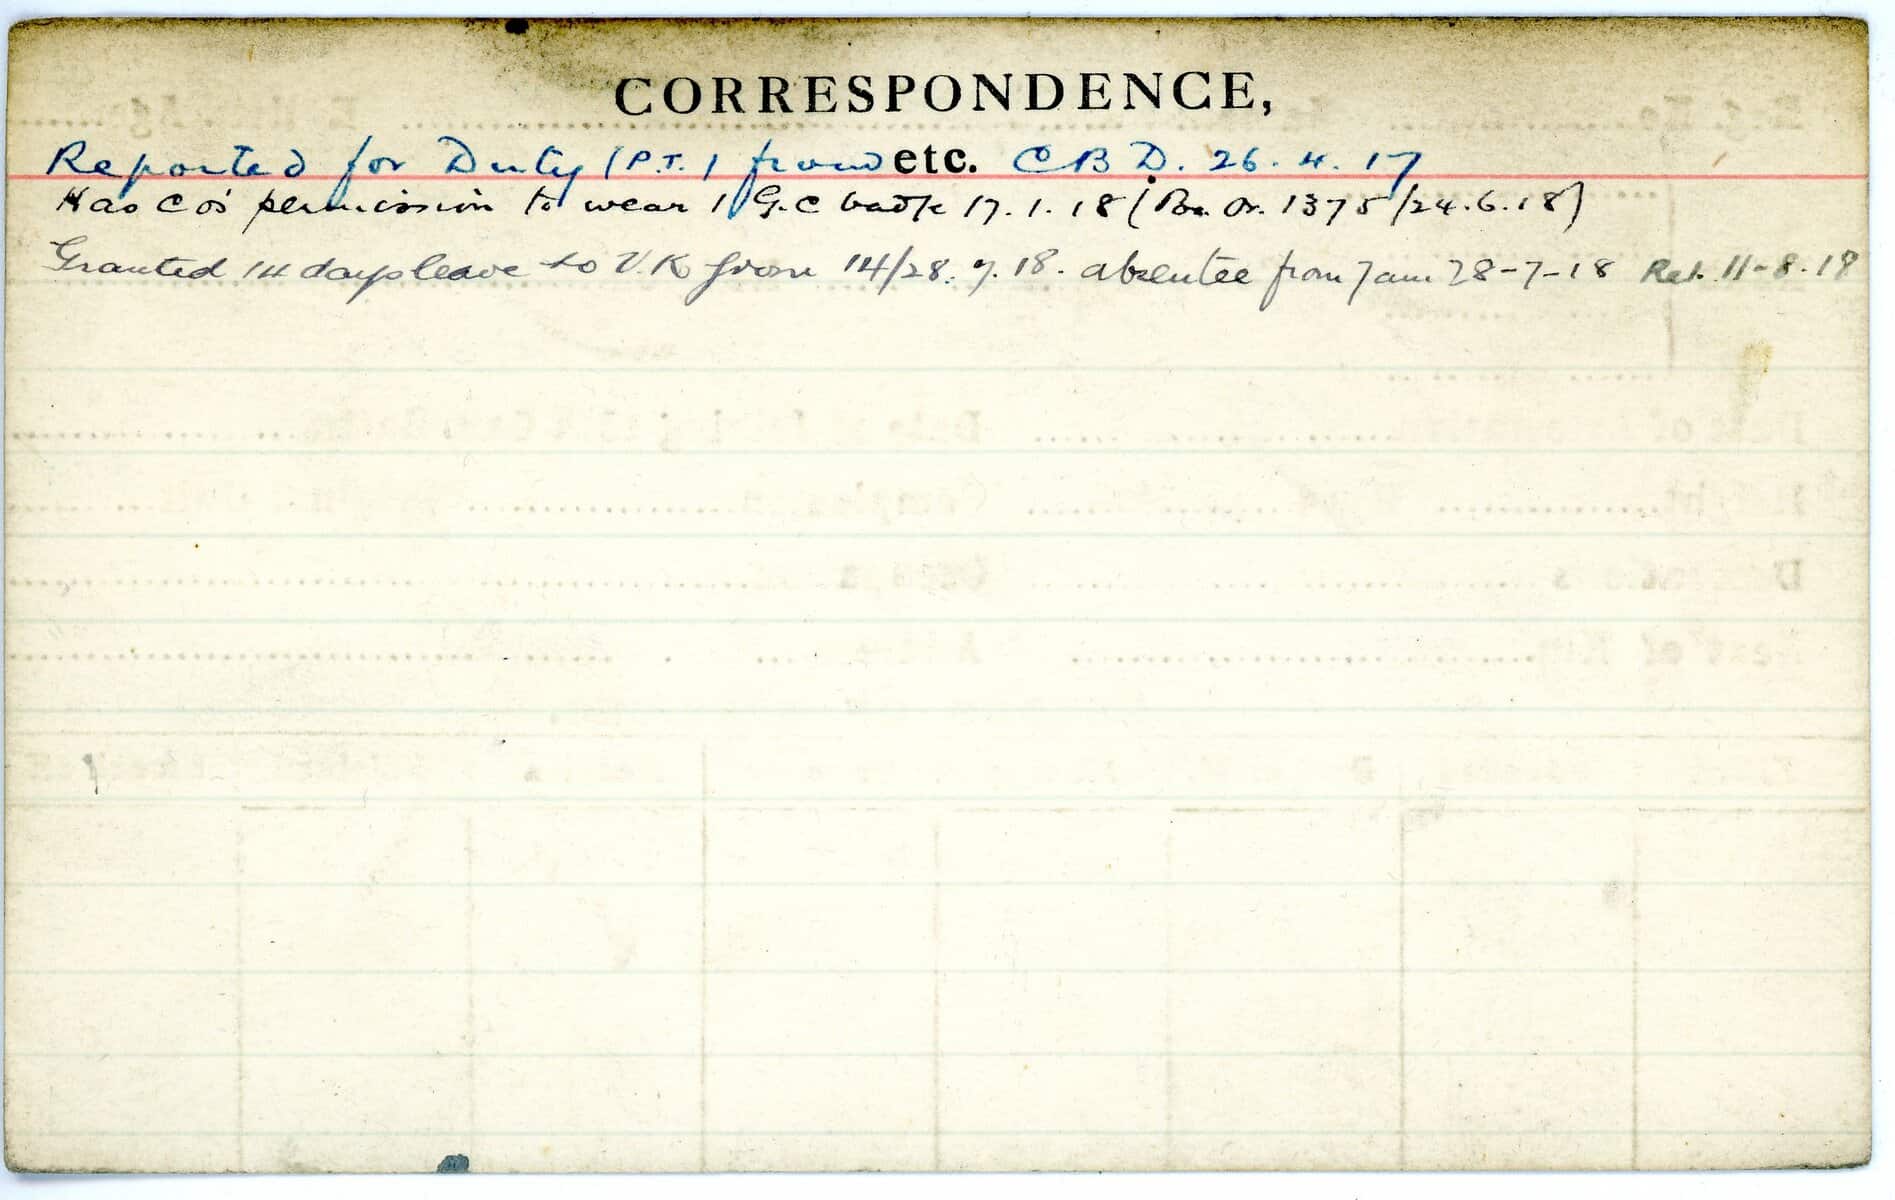 CORRESPONDENCE,
Reported for Duty (P.T.) from etc. C B D. 26.4.17
Has COs' permission to wear 1 G.C badge 17.1.18 (Bn. Or. 1375/24.6.18)
Granted 14 days leave to U.K from 14/28.7.18. absentee from 7 am 28-7-18 Ret. 11-8-18